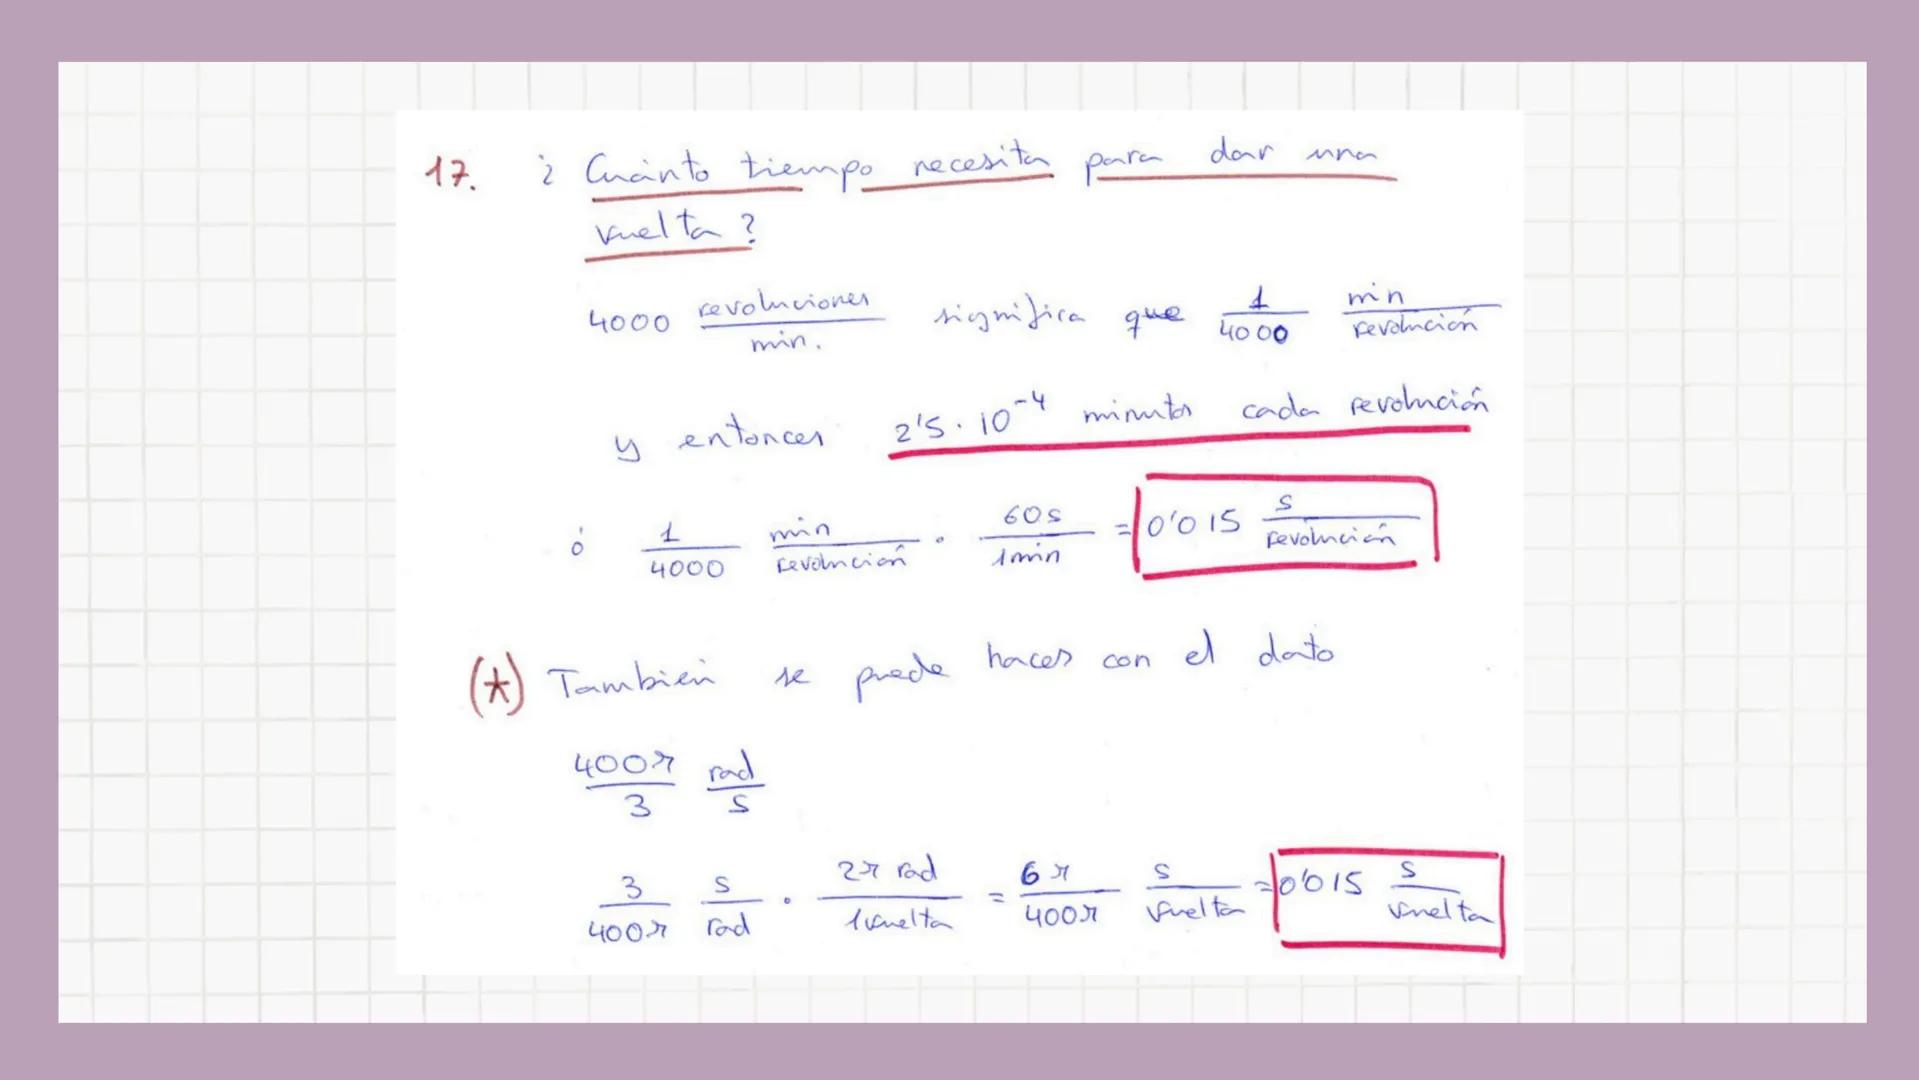 17. ¿ Cuánto tiempo necesita para dar una
vuelta ?
4000 revoluciones/min. significa que 1/4000 min/revolución
y entonces 2'5 · 10^-4 minutos cada revolución
ó 1/4000 min/revolución · 60s/1min = 0'015 s/revolución
(*) También se puede hacer con el dato
400π/3 rad/s
3/400π s/rad · 2π rad/1vuelta = 6π/400π s/vuelta = 0'015 s/vuelta